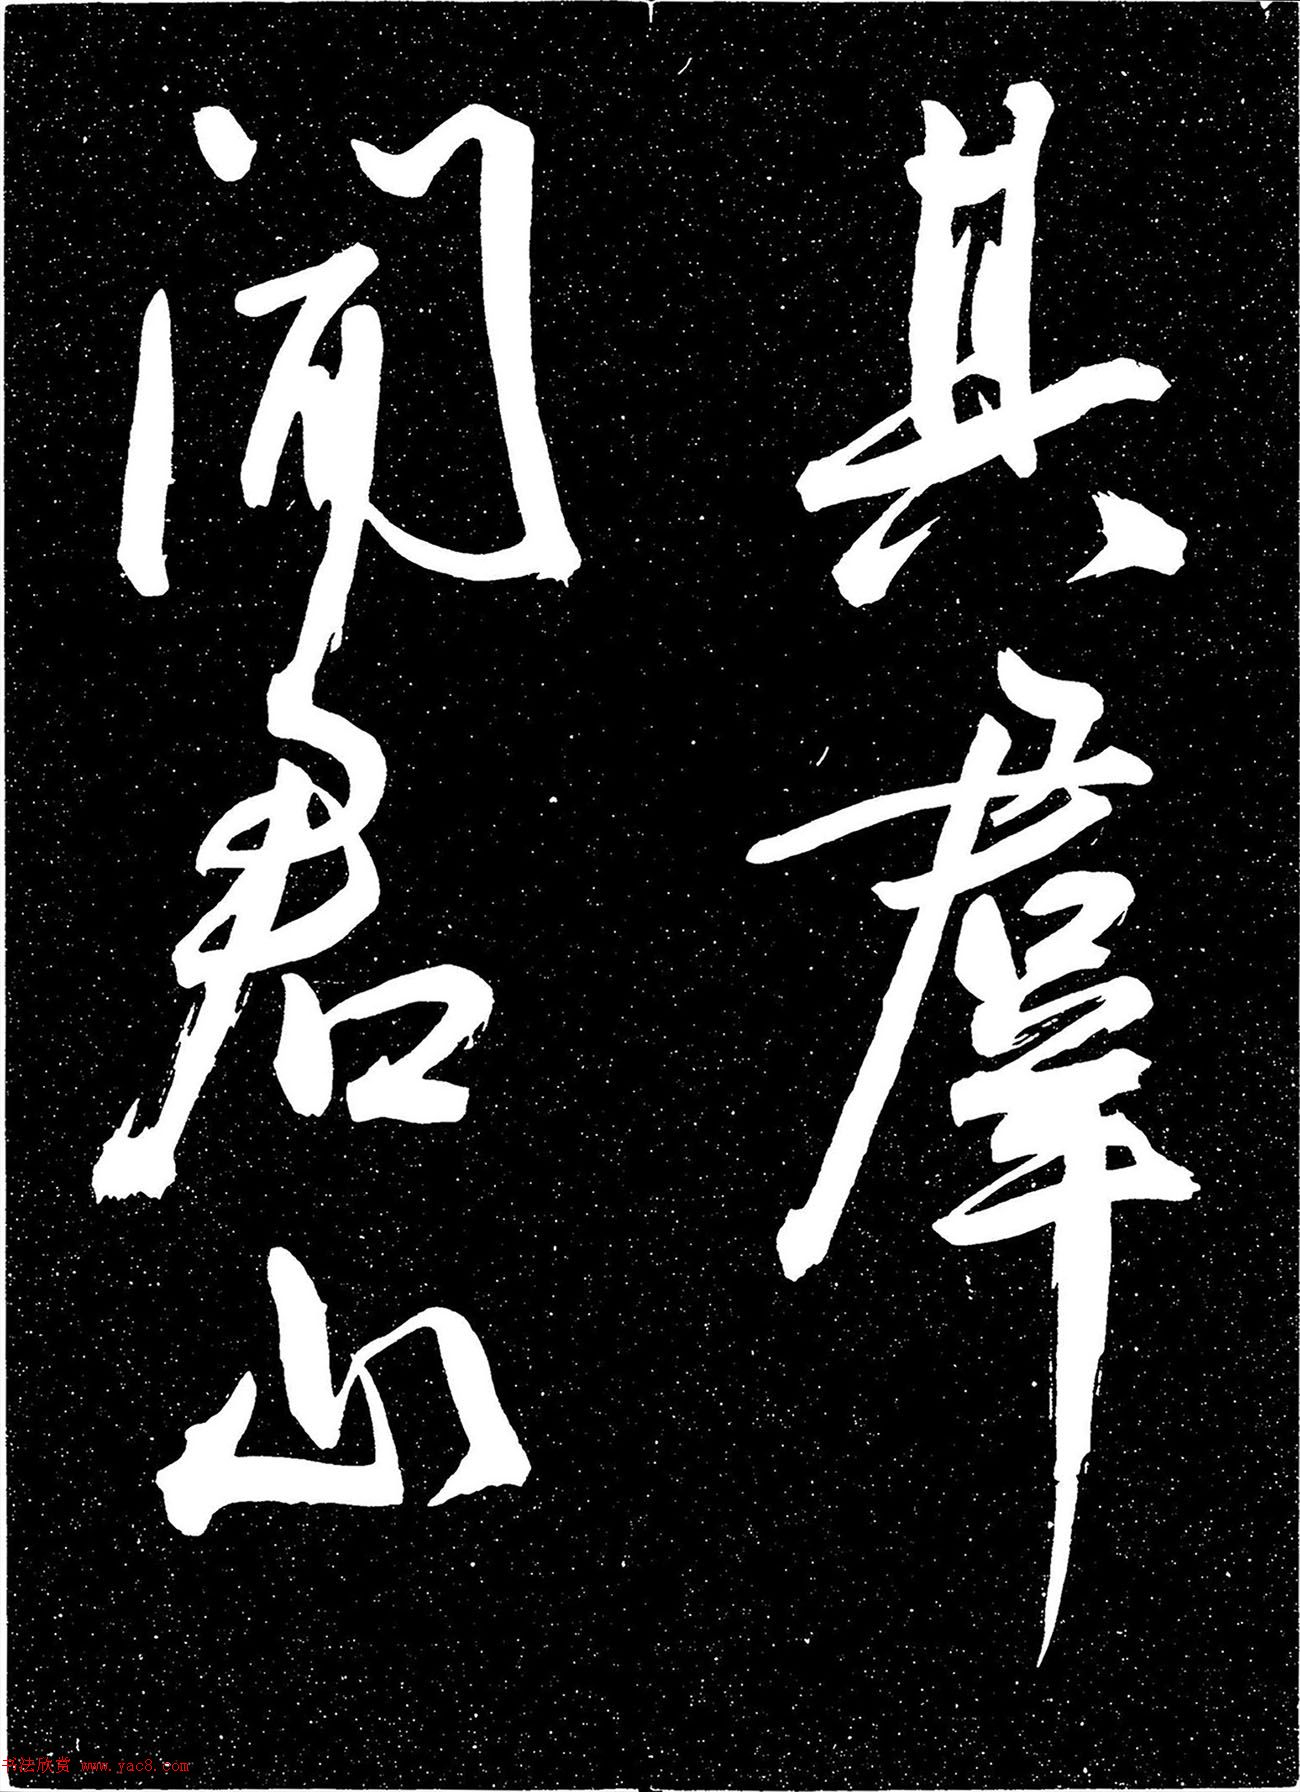 其羣
闻君山
书法欣赏 www.yac8.com